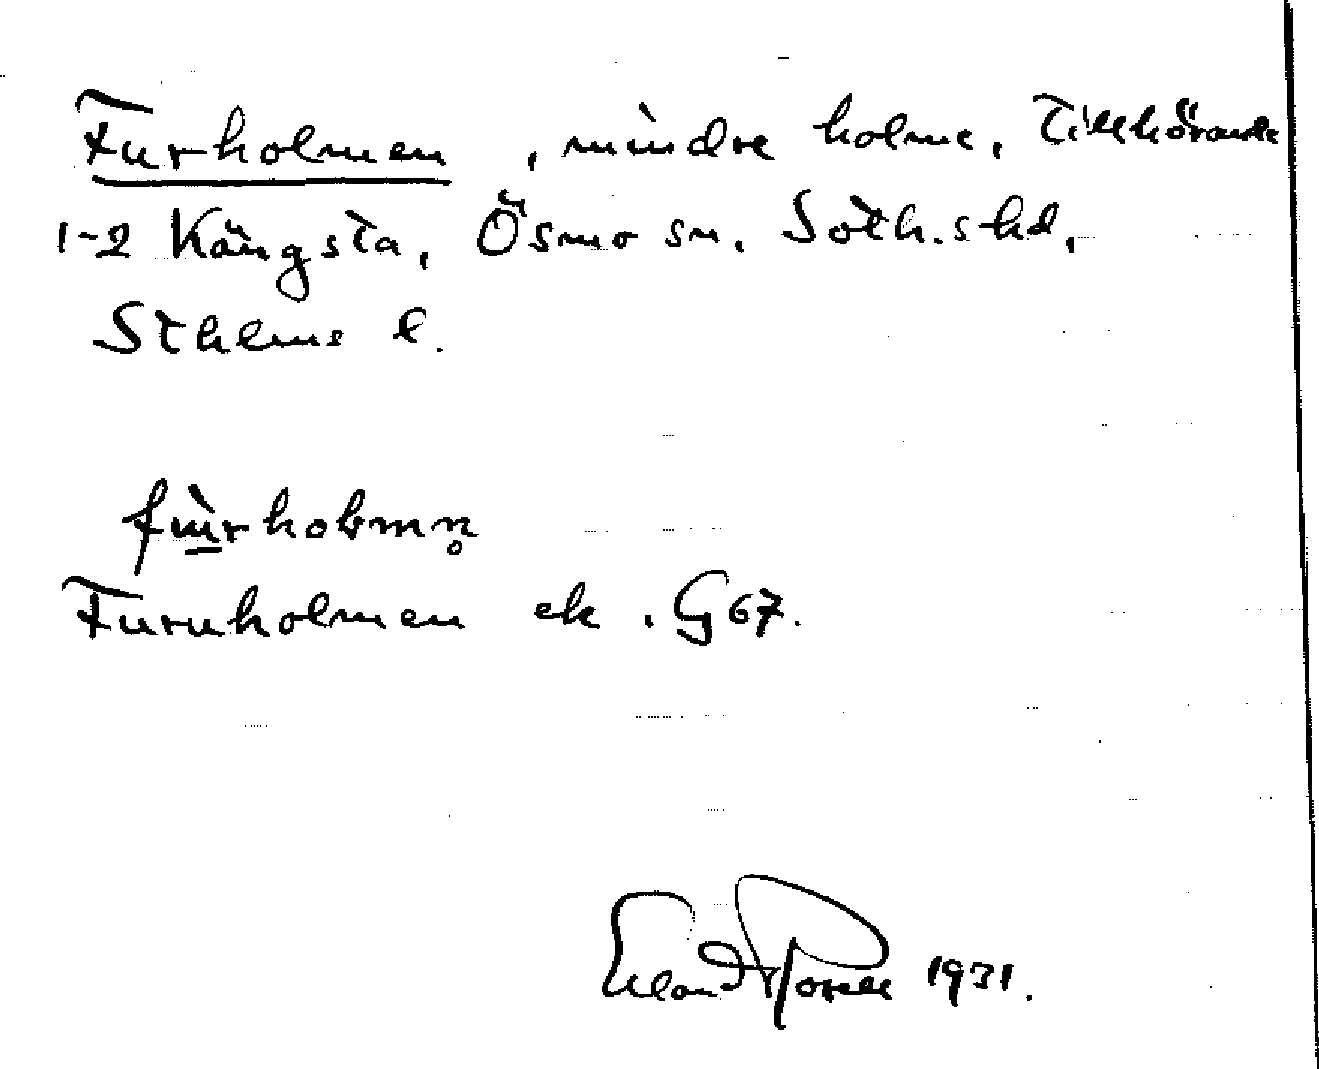 Furholmen, mindre holme, tillhörande
1-2 Kängsta, Ösmo sn. Soth.s hd,
Sthlms l.
fùrholmn̥
Furuholmen ek. G67.
Erland Rosell 1931.